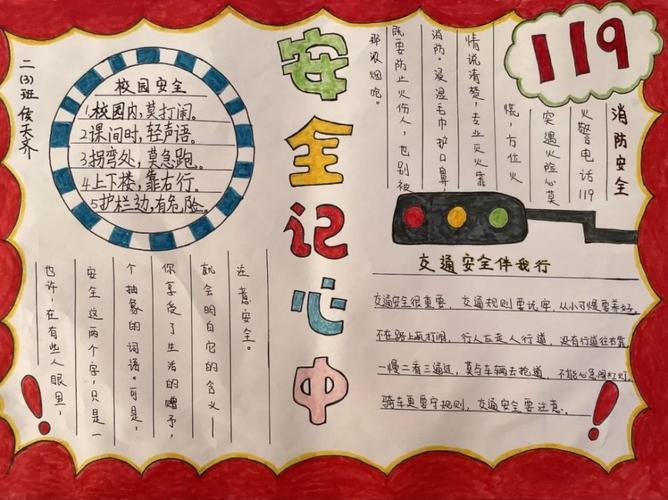 安全记心中
二(3)班 侯天齐
校园安全
1.校园内,莫打闹。
2课间时,轻声语。
3拐弯处,莫急跑。
4上下楼,靠右行。
5护栏边,有危险。
119
消防安全
火警电话119
突遇火险心莫
慌,方位火
情说清楚,专业灭火靠
消防。浸湿毛巾护口鼻
既要防止火伤人,也别被
那浓烟呛。
交通安全伴我行
交通安全很重要,交通规则要记牢,从小习惯要养好。
不在路上玩打闹,行人应走人行道,没有行道往右靠,
一慢二看三通过,莫与车辆去抢道,不能心急闯红灯,
骑车更要守规则,交通安全要注意。
也许,在有些人眼里,
安全这两个字,只是一
个抽象的词语。可是,
你享受了生活的赠予,
就会明白它的含义—
注意安全。